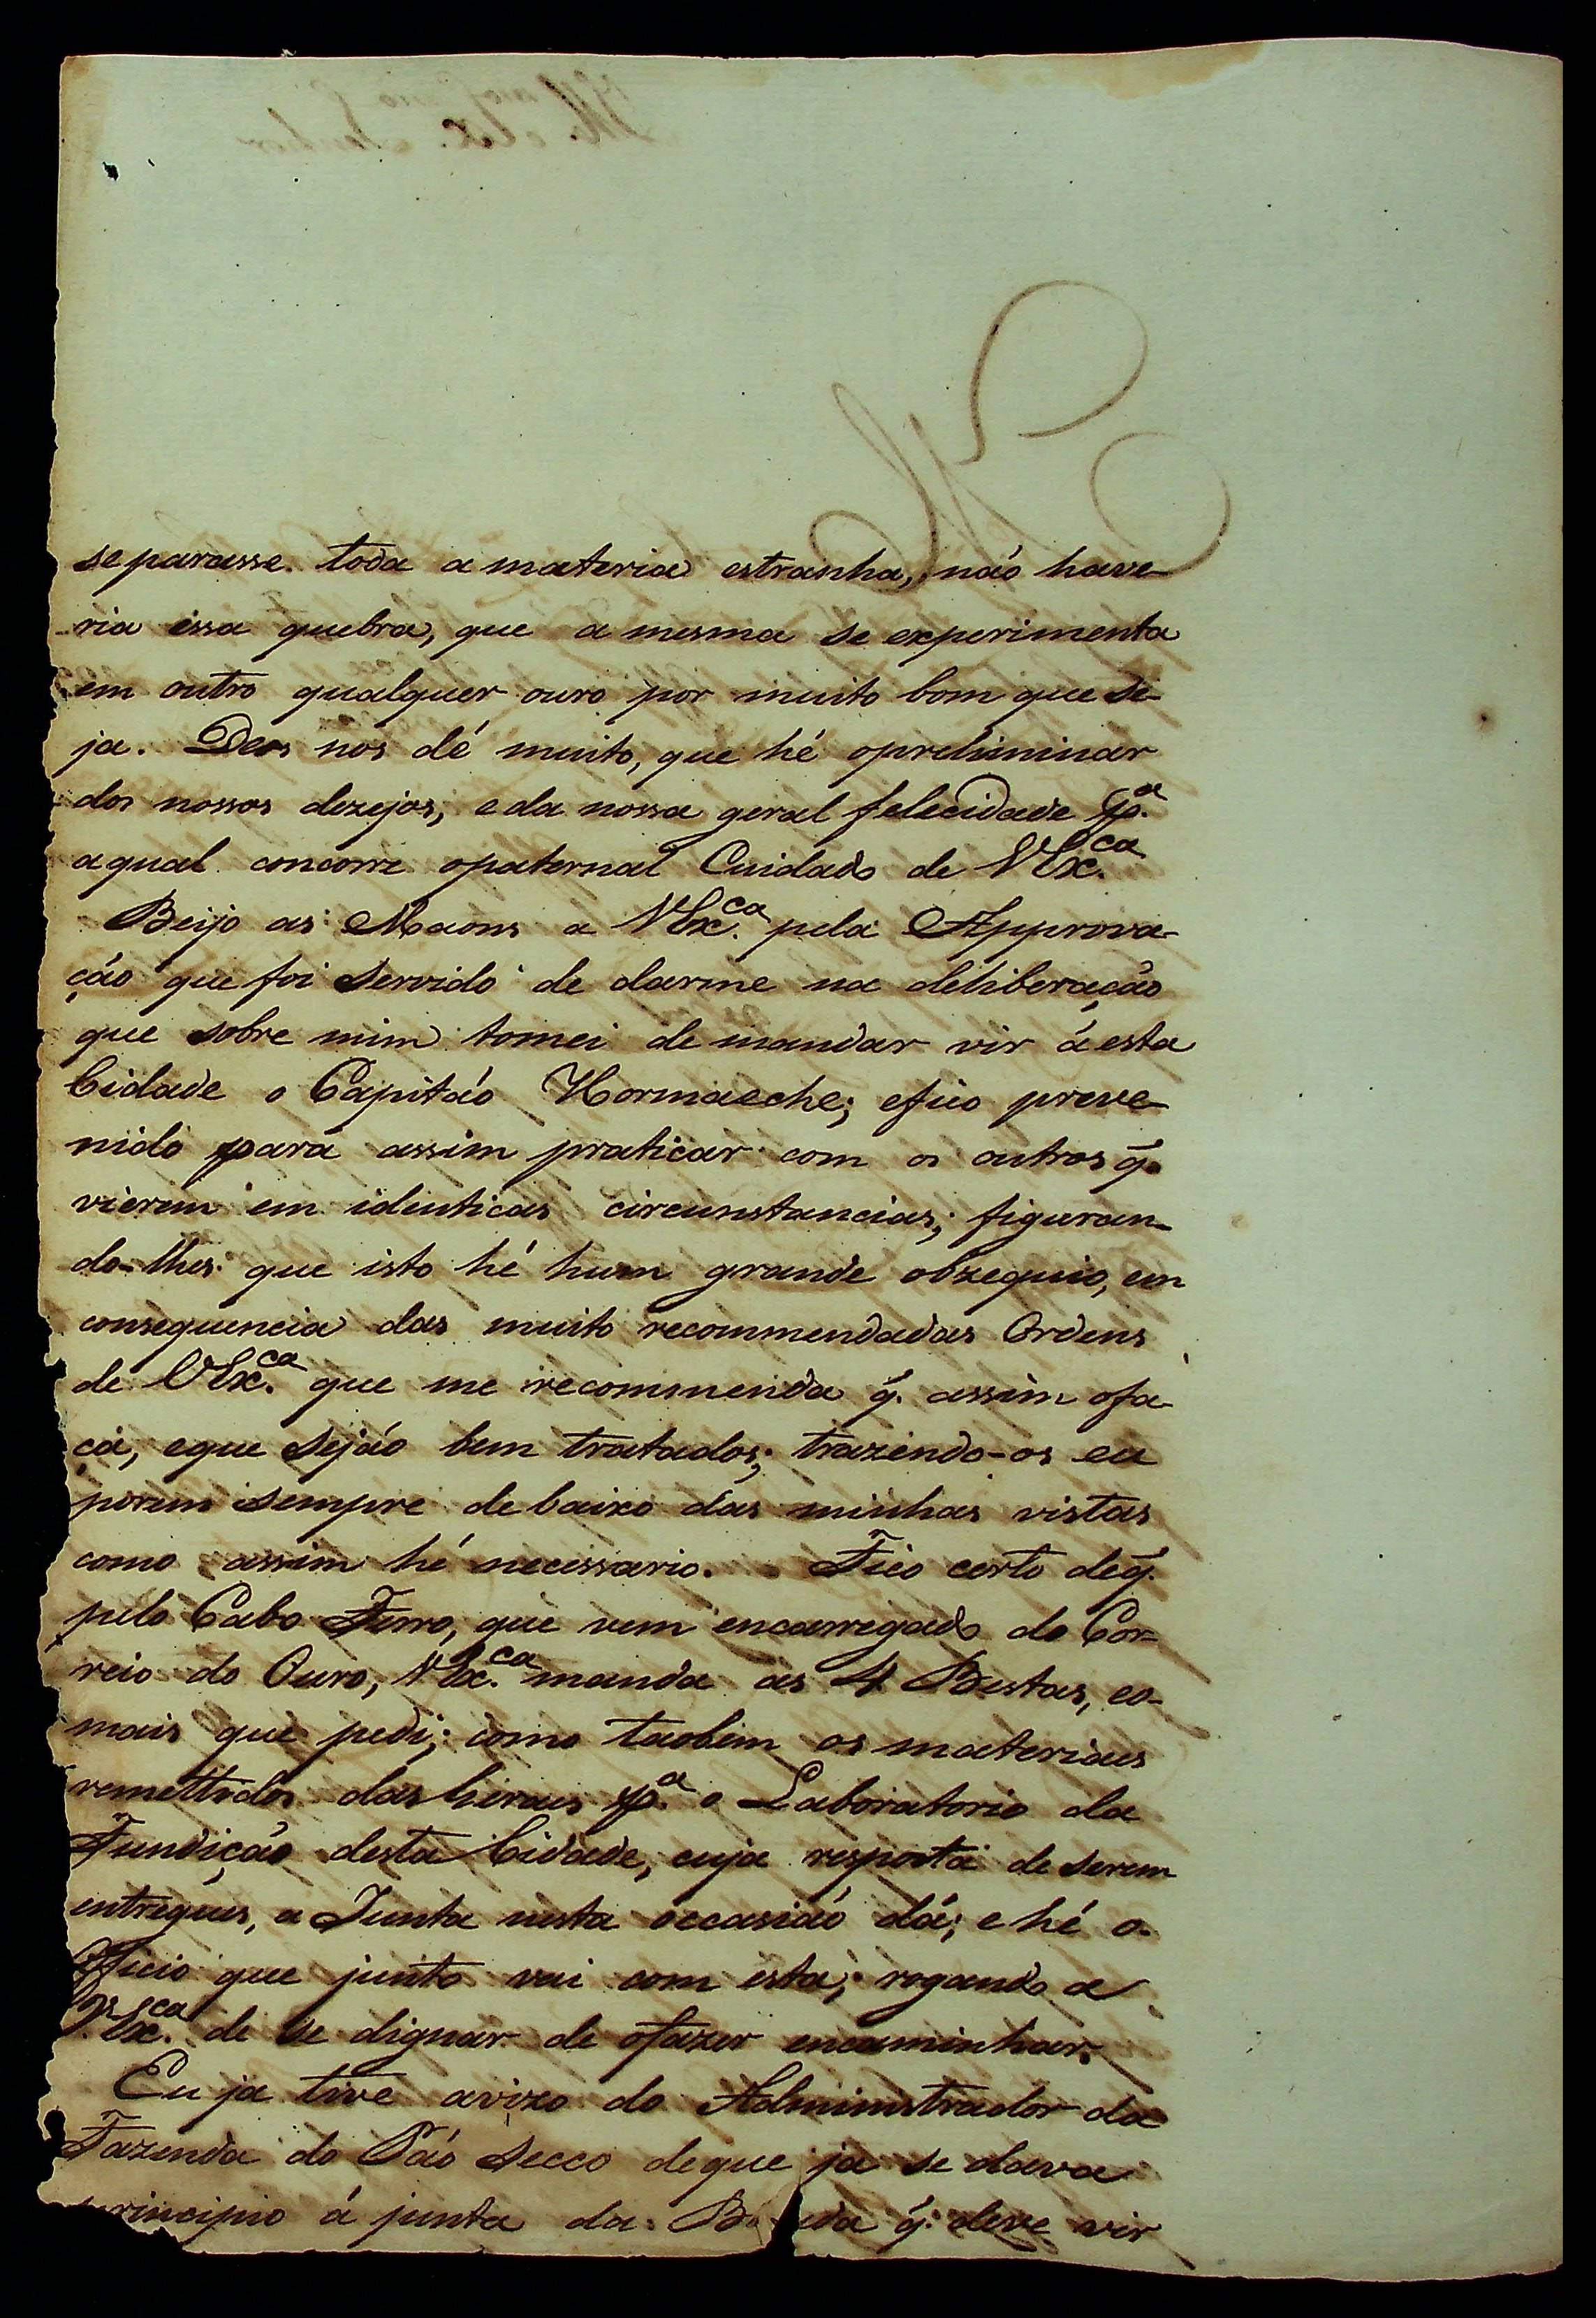 separasse toda a materia estranha, náo have-
ria essa quebra, que a mesma se experimenta
em outro qualquer ouro por muito bom que se-
ja. Deos nos dé muito, que hé opreliminar
dos nossos dezejos, eda nossa geral felecidade pª
aqual concorre opaternal Cuidado de VExca.
Beijo as Maons a VExca. pela Approva-
çáo que foi servido de darme na deliberaçáo
que sobre mim tomei de mandar vir á esta
Cidade o Capitáo Hormaeche; efico preve-
nido para assim praticar com os outros q̃.
vierem em identicas circunstancias; figuran-
do-lhes que isto hé hum grande obzequio, em
consequencia das muito recommendadas Ordens
de VExca. que me recommenda q̃. assim ofa-
ça, eque sejáo bem tratados; trazendo-os eu
porem sempre debaixo das minhas vistas
como assim hé necessario. Fico certo deq̃.
pelo Cabo Ferro, que vem encarregado do Cor-
reio do Ouro, VExca. manda as 4 Bestas, eo-
mais que pedi; como taobem os materiaes
remettidos das Geraes pª o Laboratorio da
Fundiçáo desta Cidade, cuja resposta de serem
entregues, a Junta nesta occasiáo dá; e hé o
Officio que junto vai com esta; rogando a
VExca. de se dignar de ofazer encaminhar.
Eu ja tive avizo do Administrador da
Fazenda do Páo Secco deque ja se dava
principio á junta da q̃. deve vir